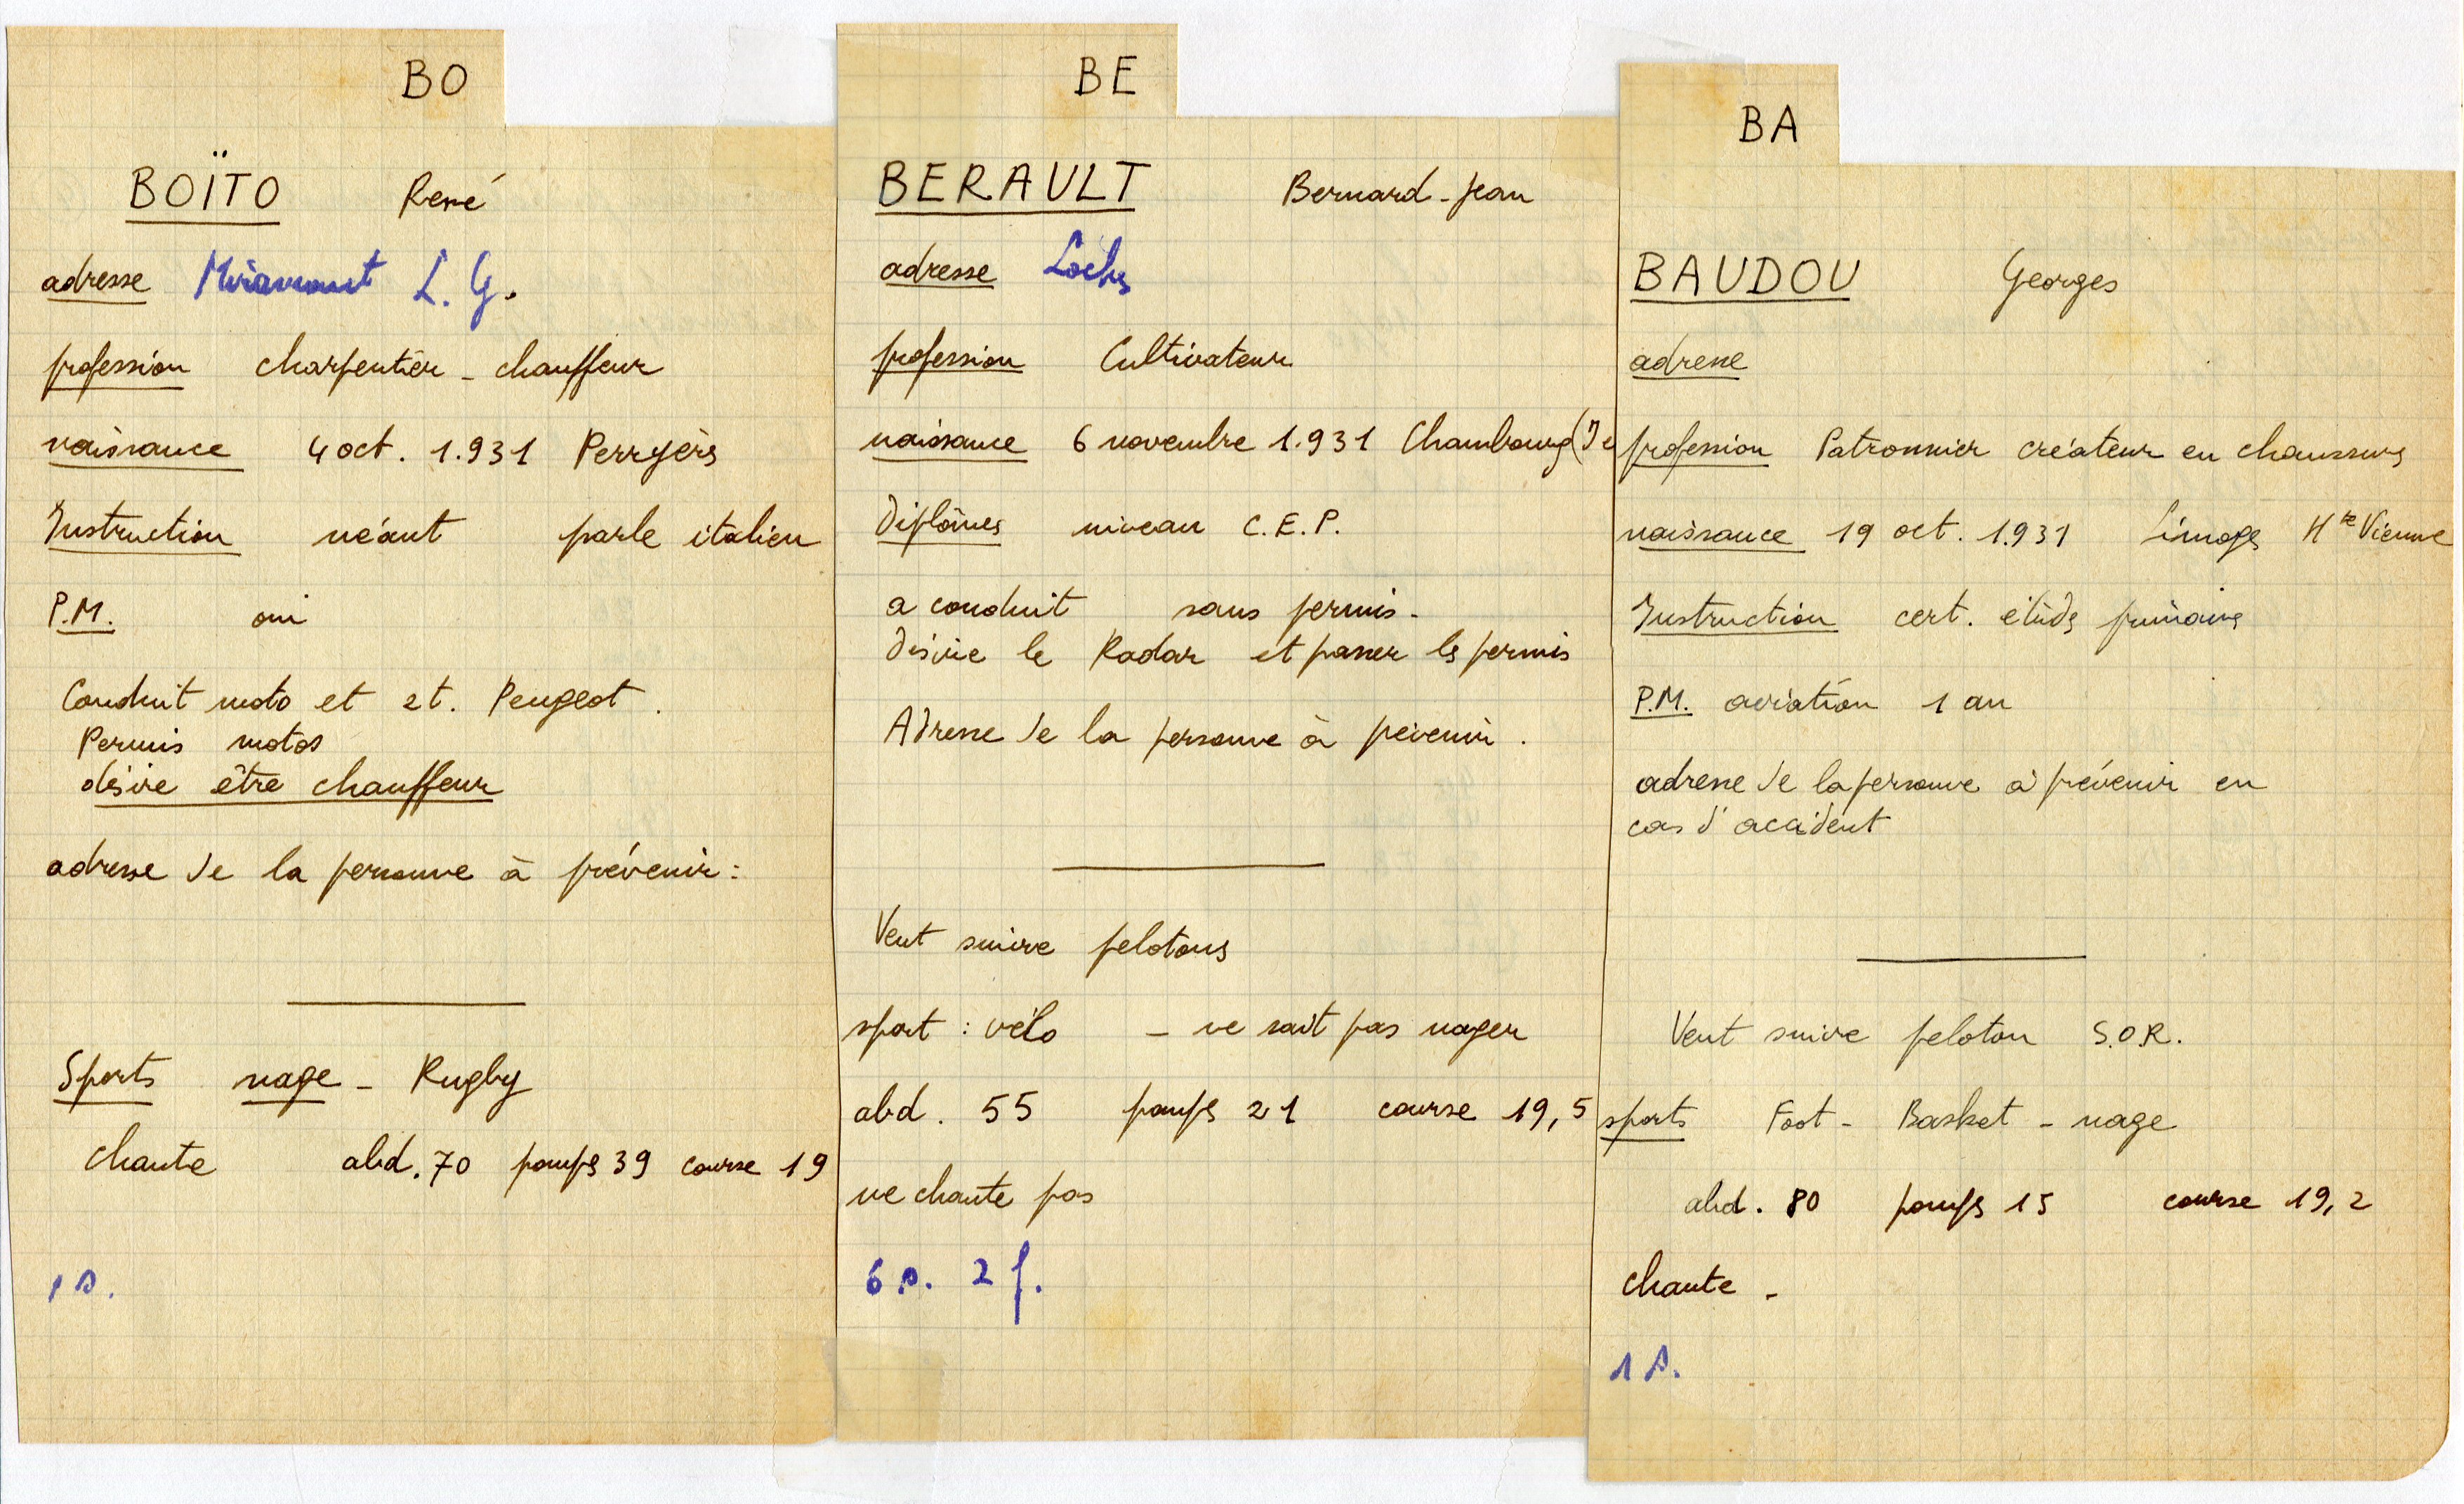 BO
BOÏTO René
adresse Miramont L. G.
profession charpentier - chauffeur
naissance 4 oct. 1.931
Instruction néant parle italien
P.M. oui
Conduit moto et 2t. Peugeot.
Permis motos
désire être chauffeur
adresse de la personne à prévenir :
Sports nage - Rugby
chante abd. 70 pomps 39 course 19
1 s.
BE
BERAULT Bernard-Jean
adresse Loches
profession Cultivateur
naissance 6 novembre 1.931 Chambourg (I
Diplômes niveau C.E.P.
a conduit sans permis -
désire le Radar et passer les permis
Adresse de la personne à prévenir.
Veut suivre pelotons
sport : vélo - ne sait pas nager
abd. 55 pomps 21 course 19,5
ne chante pas
6 s. 2 f.
BA
BAUDOU Georges
adresse
profession Patronnier créateur en chaussures
naissance 19 oct. 1.931 Limoges Hte Vienne
Instruction cert. études primaires
P.M. aviation 1 an
adresse de la personne à prévenir en
cas d'accident
Veut suivre peloton S.O.R.
sports Foot - Basket - nage
abd. 80 pomps 15 course 19,2
chante -
1 s.